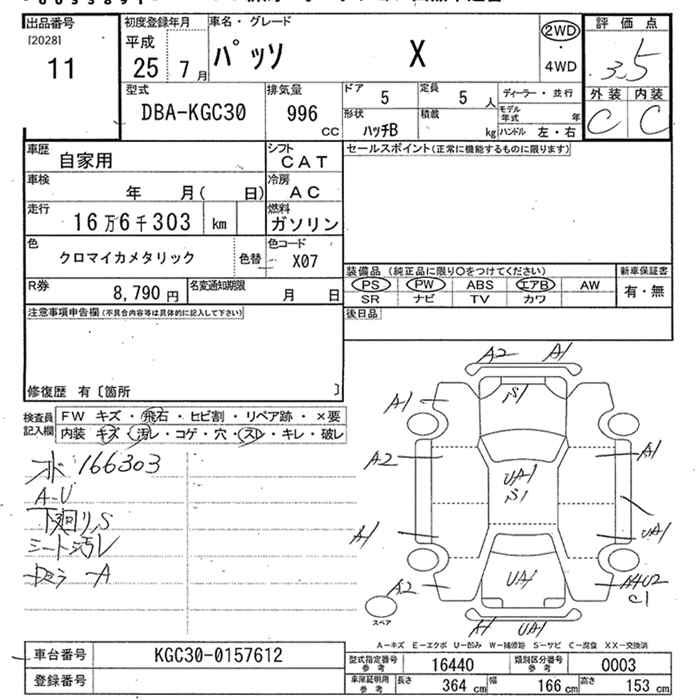 出品番号 初度登録年月 車名・グレード 評価点
[2028] 平成 2WD 3.5
11 25 7月 パッソ X ・
4WD
型式 排気量 ドア 5 定員 5 人 ディーラー・並行 外装 内装
DBA-KGC30 996 cc 形状 ハッチB 積載 kg モデル年式 年 C C
ハンドル 左・右
車歴 自家用 シフト CAT セールスポイント(正常に機能するものに限ります)
車検 年 月( 日) 冷房 AC
走行 16万6千303 km 燃料 ガソリン
色 クロマイカメタリック 色替 色コード X07
装備品 (純正品に限り○をつけてください) 新車保証書
R券 8,790円 名変通知期限 月 日 PS PW ABS エアB AW 有・無
SR ナビ TV カワ
注意事項申告欄(不具合内容等は具体的に記入して下さい) 後日品
修復歴 有〔箇所 〕
検査員記入欄 FW キズ・飛石・ヒビ割・リペア跡・×要
内装 キズ・汚レ・コゲ・穴・スレ・キレ・破レ
A2 A1
A1 S1
A2 A1
UA1
S1
A1 UA1
A2 UA1 A4U2
C1
スペア A1 UA1
166303
A-U
下廻りS
シート汚レ
A
A-キズ E-エクボ U-凹み W-補修跡 S-サビ C-腐食 XX-交換済
車台番号 KGC30-0157612 型式指定番号 参考 16440 類別区分番号 参考 0003
登録番号 車庫証明用 参考 長さ 364 cm 幅 166 cm 高さ 153 cm